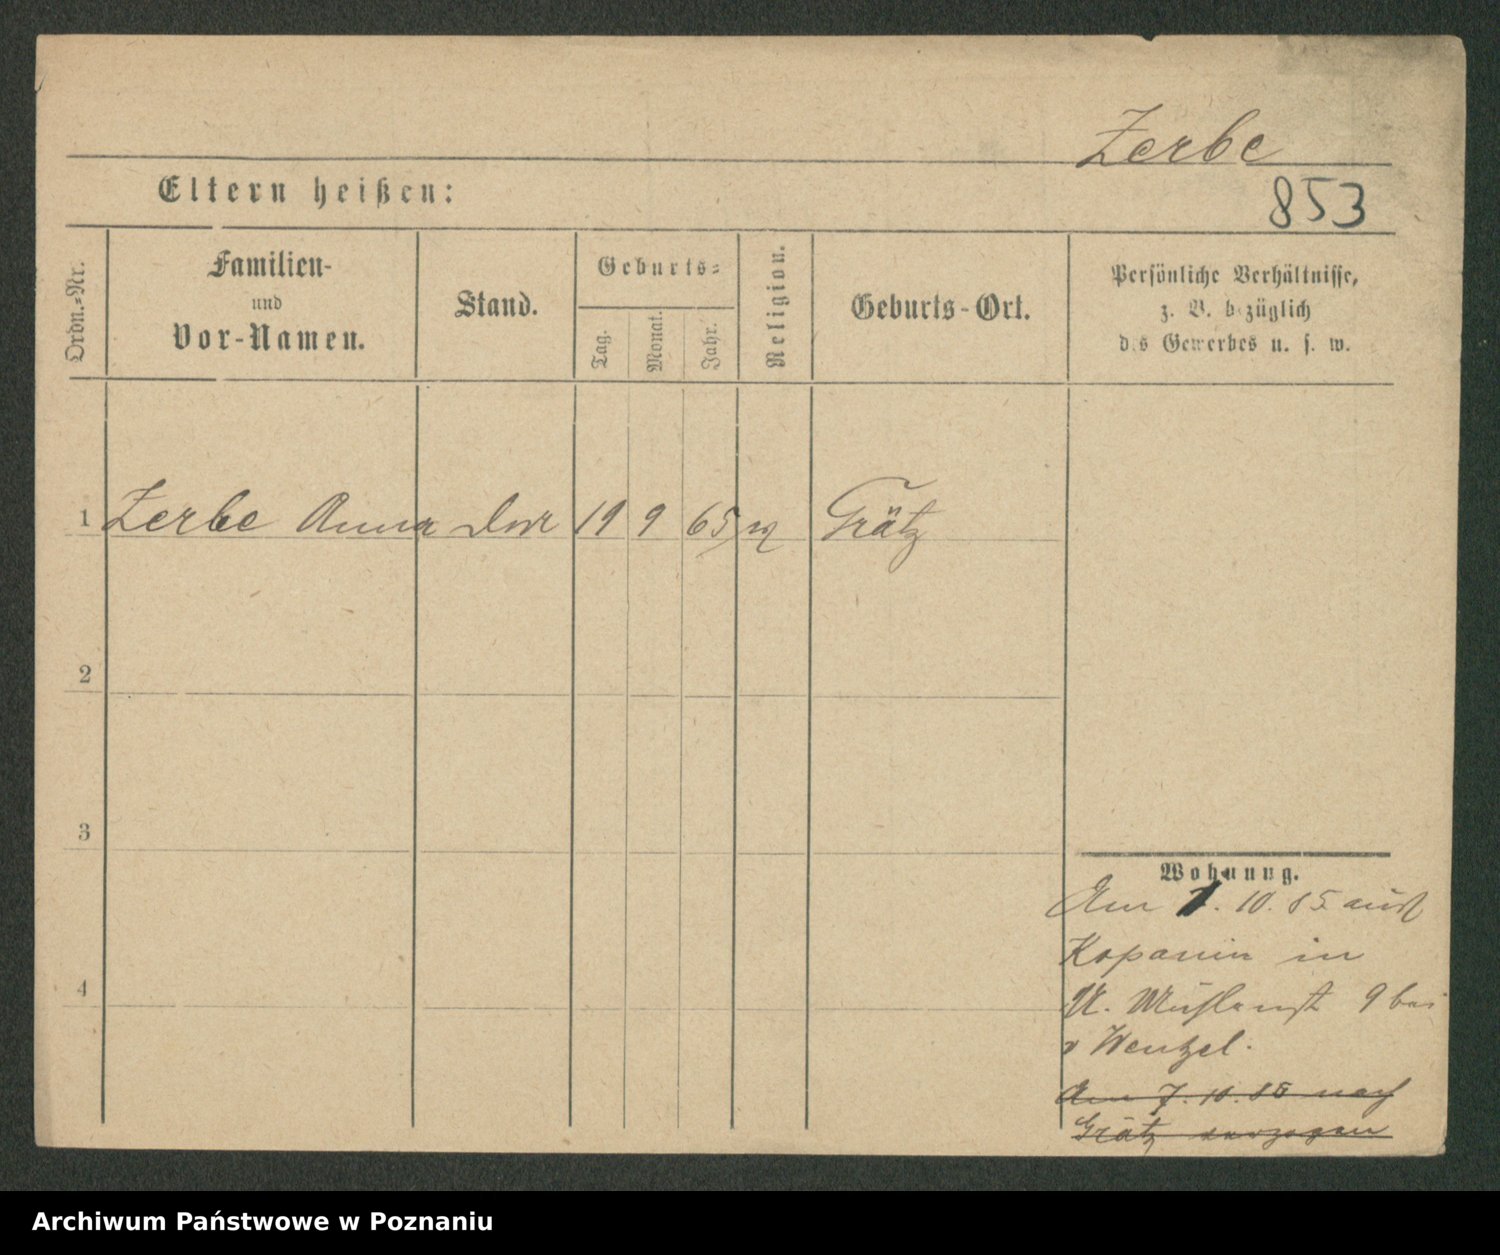 Zerbe
Eltern heißen:
853
Ordn.-Nr.
Familien-
und
Vor-Namen.
Stand.
Geburts-
Tag.
Monat.
Jahr.
Religion.
Geburts-Ort.
Persönliche Verhältnisse,
z. B. bezüglich
des Gewerbes u. s. w.
1 Zerbe Anna 19 9 65 Grätz
2
3
4
Wohnung.
Am 10. 85 aus
Kopanin in
Mühlenst 9 bei
v Wentzel.
Am 7. 10. 85 nach
Grätz verzogen
Archiwum Państwowe w Poznaniu